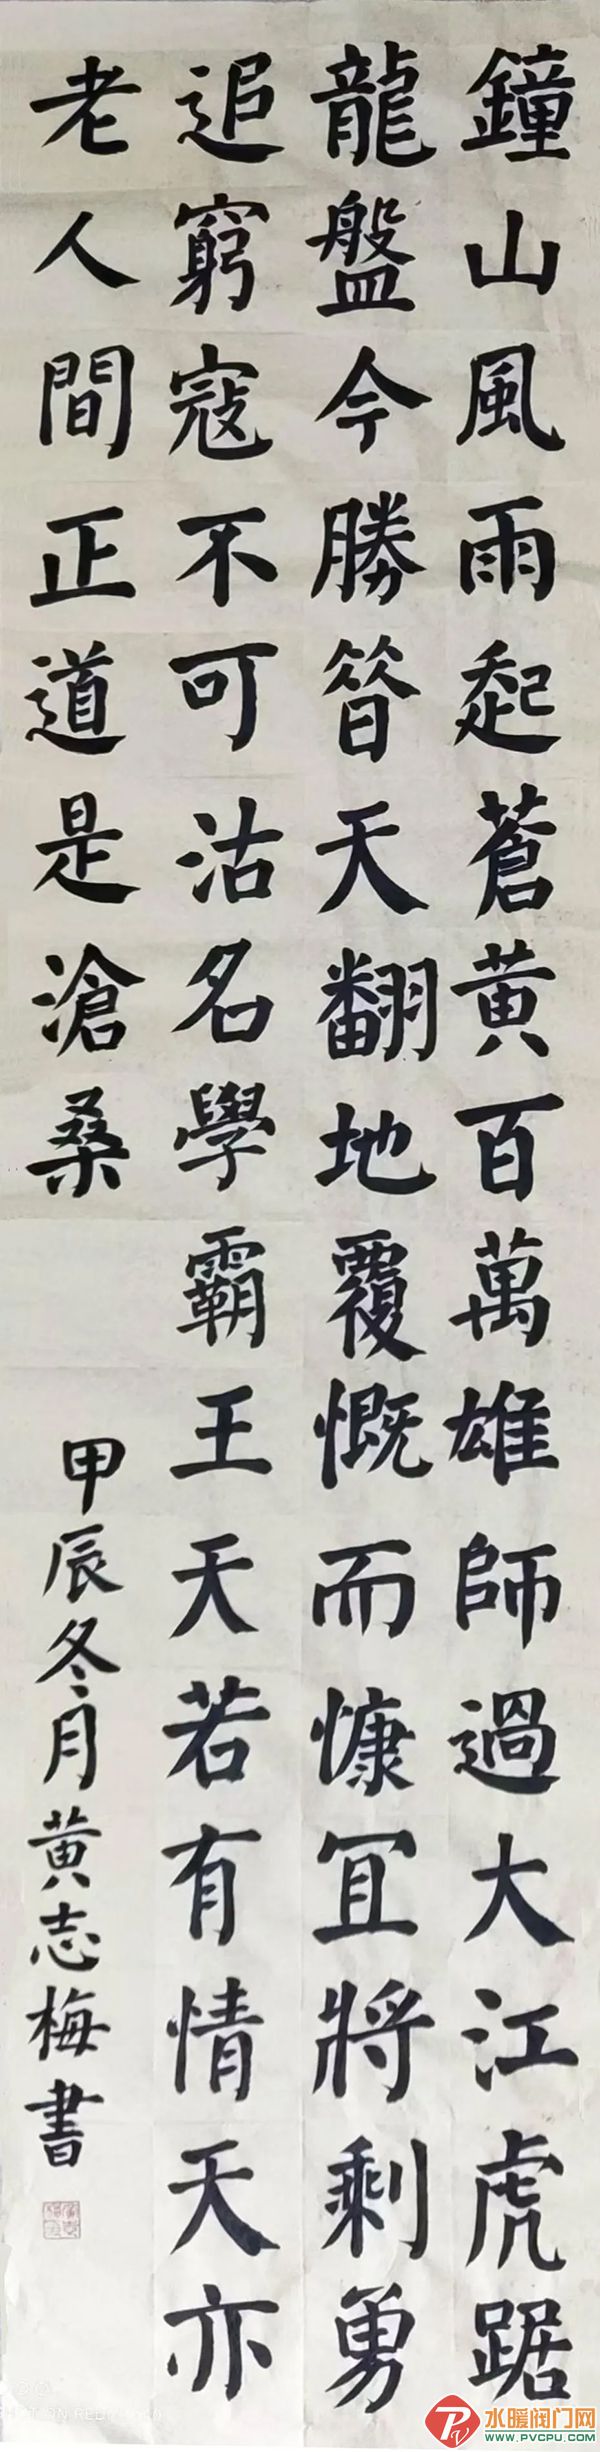 鐘山風雨起蒼黃百萬雄師過大江虎踞
龍盤今勝昔天翻地覆慨而慷宜將剩勇
追窮寇不可沽名學霸王天若有情天亦
老人間正道是滄桑
甲辰冬月黃志梅書
SHOT ON REDMI
水暖阀门网
WWW.PVCPU.COM